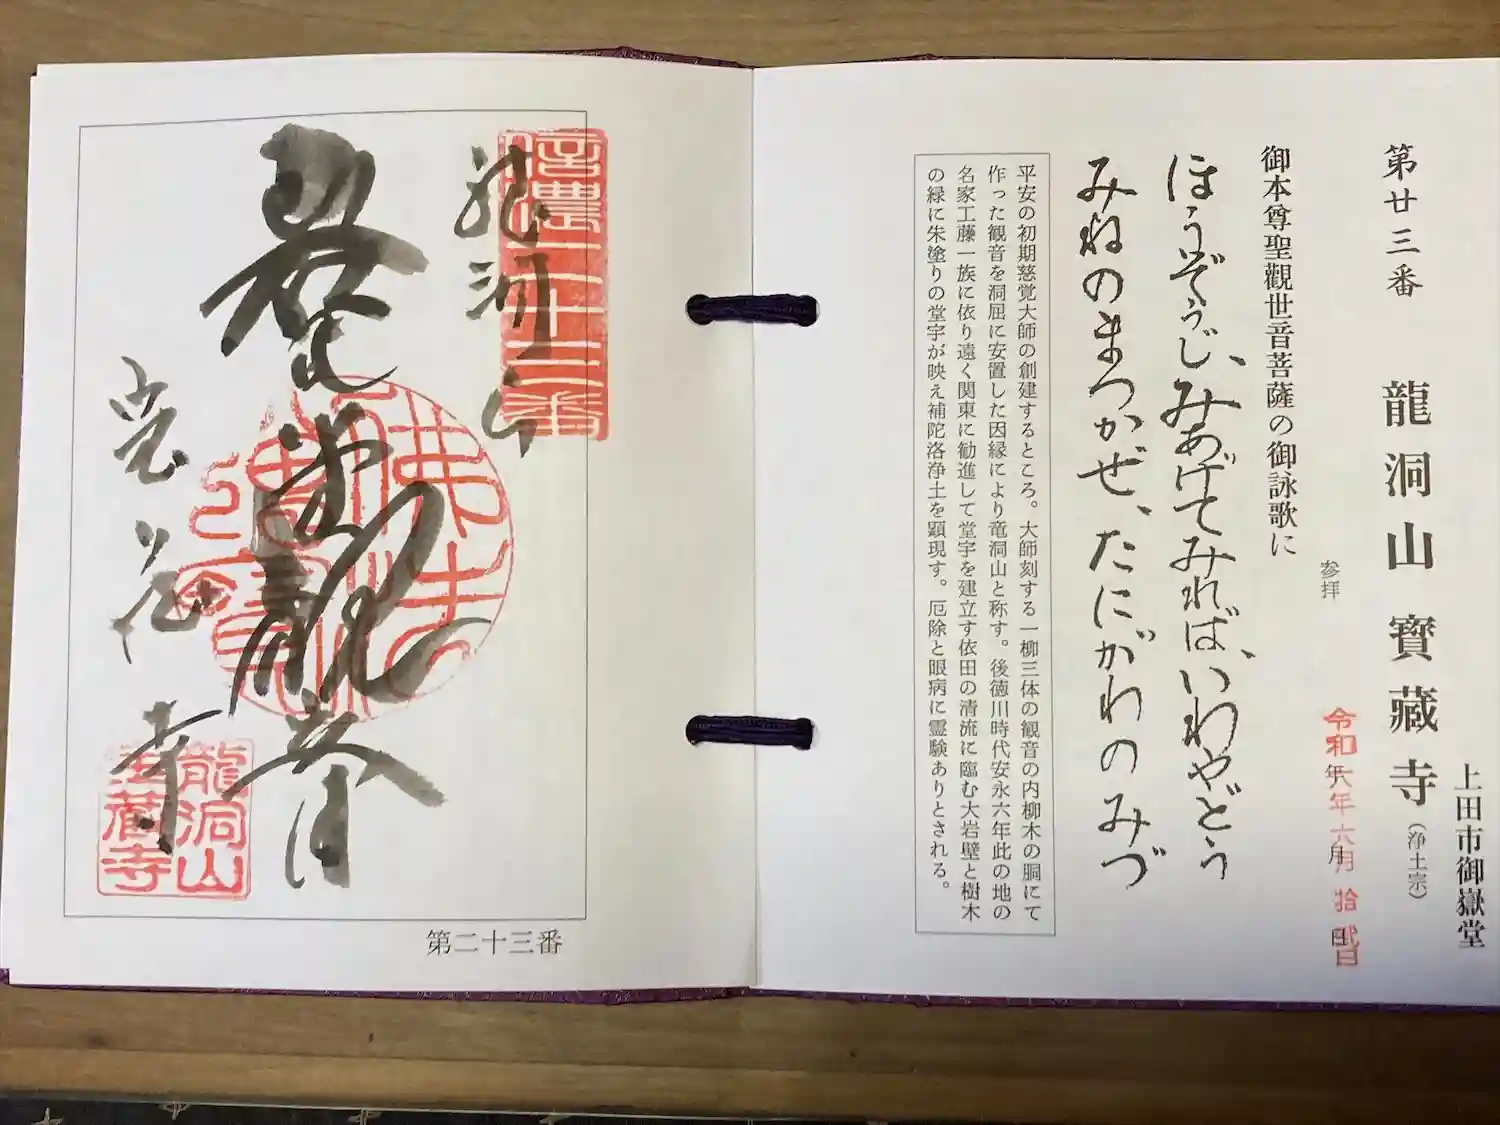 上田市御嶽堂
第廿三番 龍洞山寳藏寺(浄土宗)
参拝 令和六年六月拾弐日
御本尊聖觀世音菩薩の御詠歌に
ほうぞうじ、みあげてみれば、いわやどう
みねのまつかぜ、たにがわのみづ
平安の初期慈覚大師の創建するところ。大師刻する一柳三体の観音の内柳木の胴にて
作った観音を洞屈に安置した因縁により竜洞山と称す。後徳川時代安永六年此の地の
名家工藤一族に依り遠く関東に勧進して堂宇を建立す依田の清流に臨む大岩壁と樹木
の緑に朱塗りの堂宇が映え補陀洛浄土を顕現す。厄除と眼病に霊験ありとされる。
信濃二十三番
龍洞山
観音
寺
龍洞山
寳藏寺
第二十三番